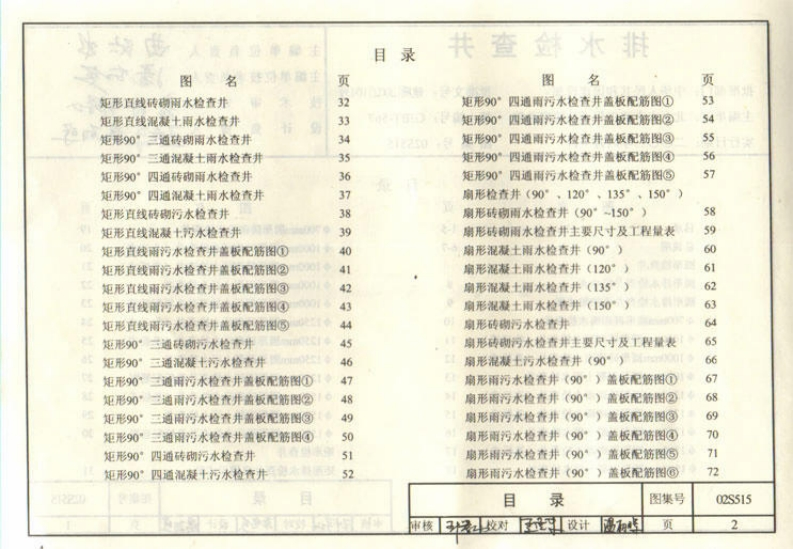 目 录
图 名 页
矩形直线砖砌雨水检查井 32
矩形直线混凝土雨水检查井 33
矩形90°三通砖砌雨水检查井 34
矩形90°三通混凝土雨水检查井 35
矩形90°四通砖砌雨水检查井 36
矩形90°四通混凝土雨水检查井 37
矩形直线砖砌污水检查井 38
矩形直线混凝土污水检查井 39
矩形直线雨污水检查井盖板配筋图① 40
矩形直线雨污水检查井盖板配筋图② 41
矩形直线雨污水检查井盖板配筋图③ 42
矩形直线雨污水检查井盖板配筋图④ 43
矩形直线雨污水检查井盖板配筋图⑤ 44
矩形90°三通砖砌污水检查井 45
矩形90°三通混凝土污水检查井 46
矩形90°三通雨污水检查井盖板配筋图① 47
矩形90°三通雨污水检查井盖板配筋图② 48
矩形90°三通雨污水检查井盖板配筋图③ 49
矩形90°三通雨污水检查井盖板配筋图④ 50
矩形90°四通砖砌污水检查井 51
矩形90°四通混凝土污水检查井 52
图 名 页
矩形90°四通雨污水检查井盖板配筋图① 53
矩形90°四通雨污水检查井盖板配筋图② 54
矩形90°四通雨污水检查井盖板配筋图③ 55
矩形90°四通雨污水检查井盖板配筋图④ 56
矩形90°四通雨污水检查井盖板配筋图⑤ 57
扇形检查井(90°、120°、135°、150°)
扇形砖砌雨水检查井(90°~150°) 58
扇形砖砌雨水检查井主要尺寸及工程量表 59
扇形混凝土雨水检查井(90°) 60
扇形混凝土雨水检查井(120°) 61
扇形混凝土雨水检查井(135°) 62
扇形混凝土雨水检查井(150°) 63
扇形砖砌污水检查井 64
扇形砖砌污水检查井主要尺寸及工程量表 65
扇形混凝土污水检查井(90°) 66
扇形雨污水检查井(90°)盖板配筋图① 67
扇形雨污水检查井(90°)盖板配筋图② 68
扇形雨污水检查井(90°)盖板配筋图③ 69
扇形雨污水检查井(90°)盖板配筋图④ 70
扇形雨污水检查井(90°)盖板配筋图⑤ 71
扇形雨污水检查井(90°)盖板配筋图⑥ 72
目 录 图集号 02S515
审核 校对 设计 页 2